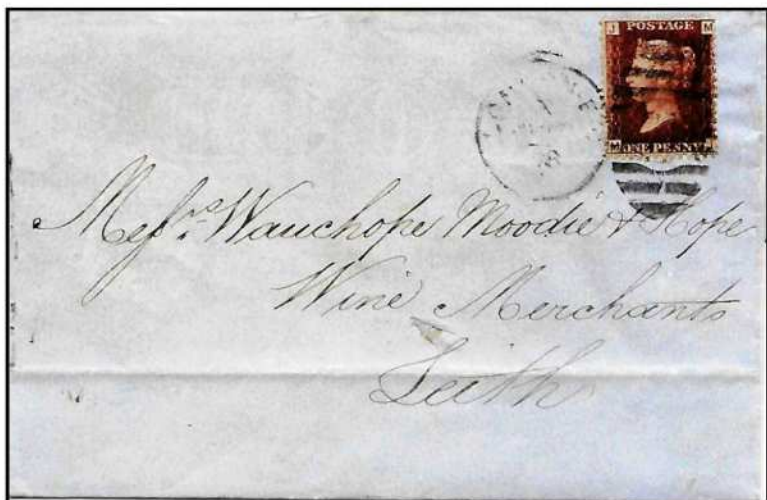 J M
POSTAGE
M J
ONE PENNY
Mess.rs Wauchope Moodie & Hope
Wine Merchants
Leith